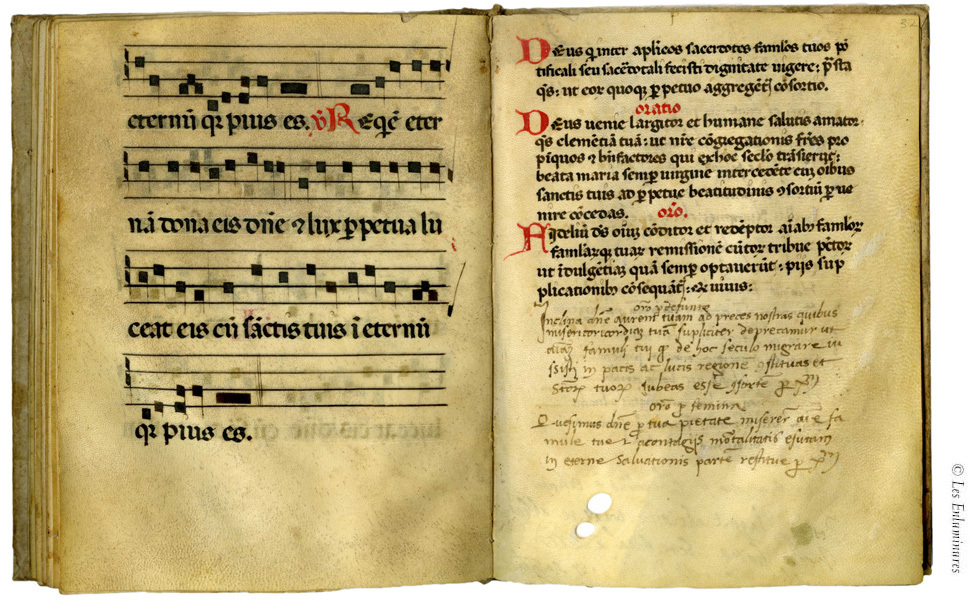 eternū qr pius es. ℣ Reqē eter
nā dona eis dn̄e ⁊ lux ꝑpetua lu
ceat eis cū sāctis tuis ī eternū
qr pius es.
32
Deus q inter aplicos sacerdotes famlos tuos pō
tificali seu sacēdotali fecisti dignitate uigere: p̄sta
qs: ut eor quoq ꝑpetuo aggregent̄ cōsortio.
oratio
Deus uenie largitor et humane salutis amator:
qs clemētiā tuā: ut nr̄e cōgregationis fr̄es pro
pīquos ⁊ bn̄factores qui ex hoc seclo trāsierūt:
beata maria semꝑ uirgine intercedēte cū oībus
sanctis tuis ad ꝑpetue beatitudinis ꝯsortiū ꝑue
nire cōcedas. oro.
Fideliū ds oīuʒ cōditor et redēptor aīabꝰ famlor
famlarqʒ tuar remissionē cūctor tribue pctor
ut īdulgētiaʒ quā semꝑ optauerūt: pijs sup
plicationibꝰ cōsequant̄: Qui uiuis:
oro ꝓ defuncto
Inclina dn̄e aurem tuam ad preces nostras quibus
misericordiaʒ tuā supliciter deprecamur ut
aīaʒ famuli tui qʒ de hoc seculo migrare iu
sisti in pacis ac lucis regione ꝯstituas et
Sctorꝫ tuorꝫ iubeas esse ꝯsortē ꝑ xp̄m
oro ꝓ femina
Quesumus dn̄e ꝓ tua pietate miserere aīe fa
mule tue ⁊ a contagijs mortalitatis exutam
in eterne saluationis partē restitue ꝑ xp̄m
© Les Enluminures